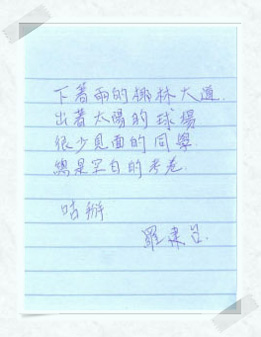 下著雨的椰林大道
出著太陽的球場
很少見面的同學
總是空白的考卷

咕掰
羅東呂